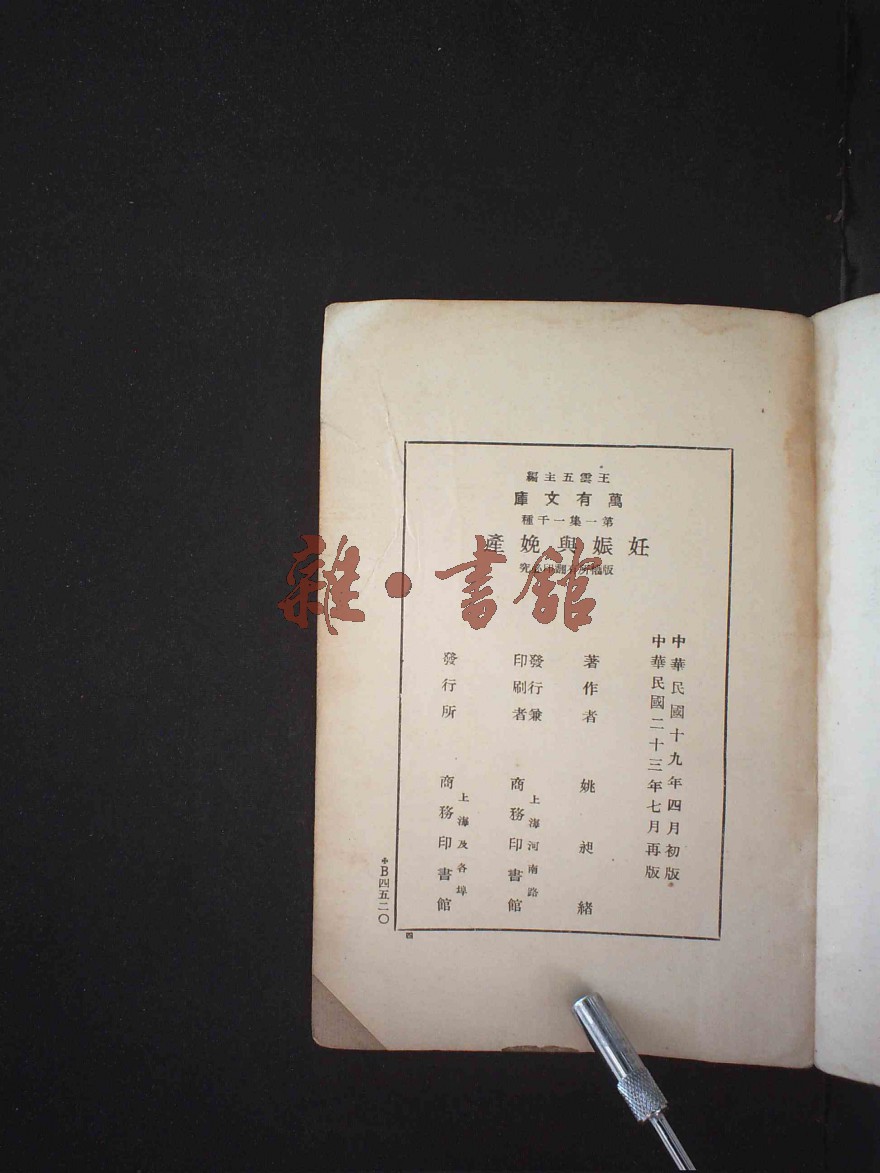 王雲五主編
萬有文庫
第一集一千種
妊娠與娩產
版權所有翻印必究
中華民國十九年四月初版
中華民國二十三年七月再版
著作者 姚昶緒
發行兼印刷者 上海河南路 商務印書館
發行所 上海及各埠 商務印書館
B四五二〇
四
雜·書館